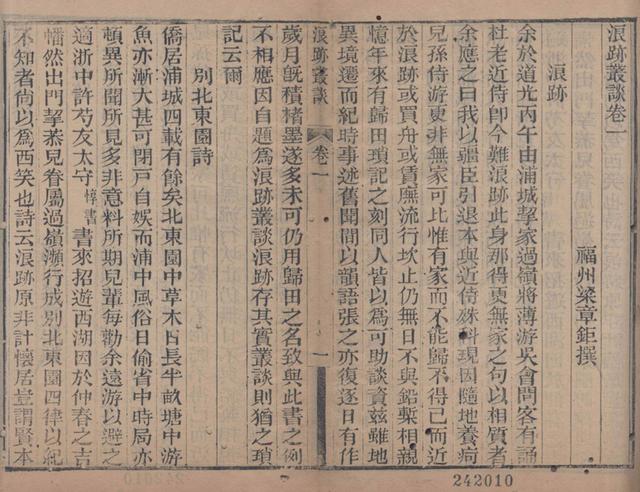 浪跡叢談卷一
福州梁章鉅撰
浪跡
余於道光丙午由浦城挈家過嶺將薄游吳會問客有誦
杜老近侍卽今難浪跡此身那得更無家之句以相質者
余應之曰我以疆臣引退本與近侍殊科現因隨地養疴
兒孫侍游更非無家可比惟有家而不能歸不得已而近
於浪跡或買舟或賃廡流行坎止仍無日不與鉛槧相親
憶年來有歸田瑣記之刻同人皆以爲可助談資茲雖地
異境遷而紀時事述舊聞間以韻語張之亦復逐日有作
浪跡叢談
卷一
一
歲月旣積楮墨遂多未可仍用歸田之名致與此書之例
不相應因自題爲浪跡叢談浪跡存其實叢談則猶之瑣
記云爾
別北東園詩
僑居浦城四載有餘矣北東園中草木日長半畝塘中游
魚亦漸大甚可閉戶自娛而浦中風俗日偷省中時局亦
頓異所聞所見多非意料所期兒輩每勸余遠游以避之
適浙中許芍友太守
惇書
書來招遊西湖因於仲春之吉
幡然出門挈眷兒眷屬過嶺瀕行成別北東園四律以紀
不知者尙以爲西笑也詩云浪跡原非計懷居豈謂賢本
242010